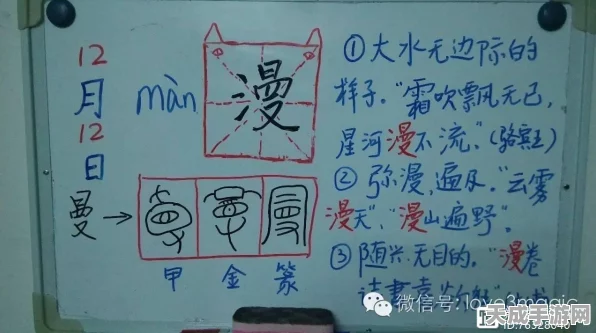 12
月
12
日
màn
漫
曼→
甲 金 篆
①大水无边际的
样子。“霜吹飘无已,
星河漫不流。”(骆宾王)
②弥漫,遍及。“云雾
漫天”,“漫山遍野”。
③随兴,无目的。“漫卷
微信号: love3magic
天成手游网